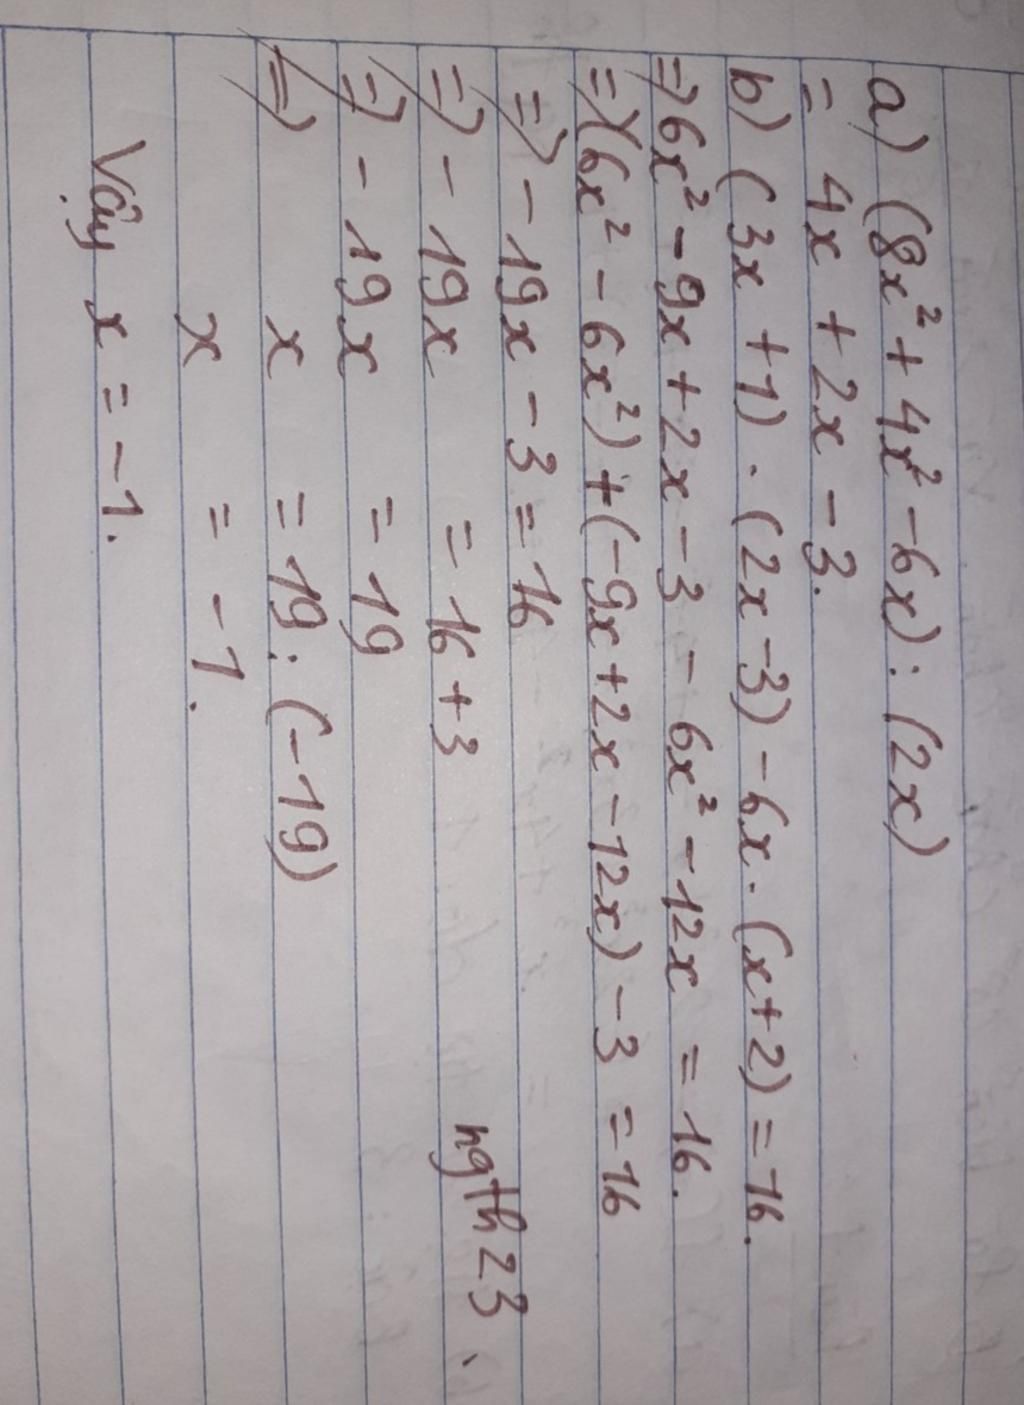 a) (8x² + 4x² - 6x) : (2x)
= 4x + 2x - 3.
b) (3x + 1) . (2x - 3) - 6x . (x + 2) = 16.
=> 6x² - 9x + 2x - 3 - 6x² - 12x = 16.
=> (6x² - 6x²) + (-9x + 2x - 12x) - 3 = 16
=> -19x - 3 = 16
=> -19x = 16 + 3
=> -19x = 19
=> x = 19 : (-19)
x = -1.
Vậy x = -1.
ngth23